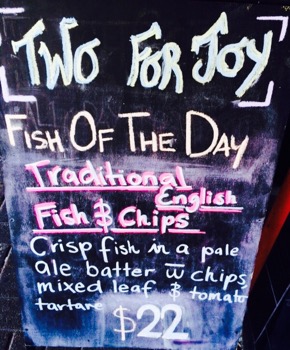 Two For Joy
Fish Of The Day
Traditional
English
Fish & Chips
Crisp fish in a pale
ale batter w̅ chips
mixed leaf & tomato
tartare
$22